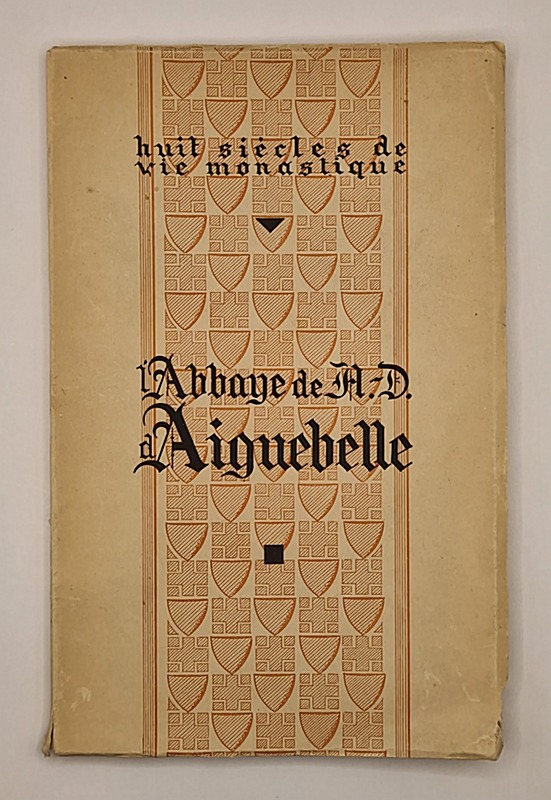 huit siècles de
vie monastique
l'Abbaye de N.-D.
d'Aiguebelle